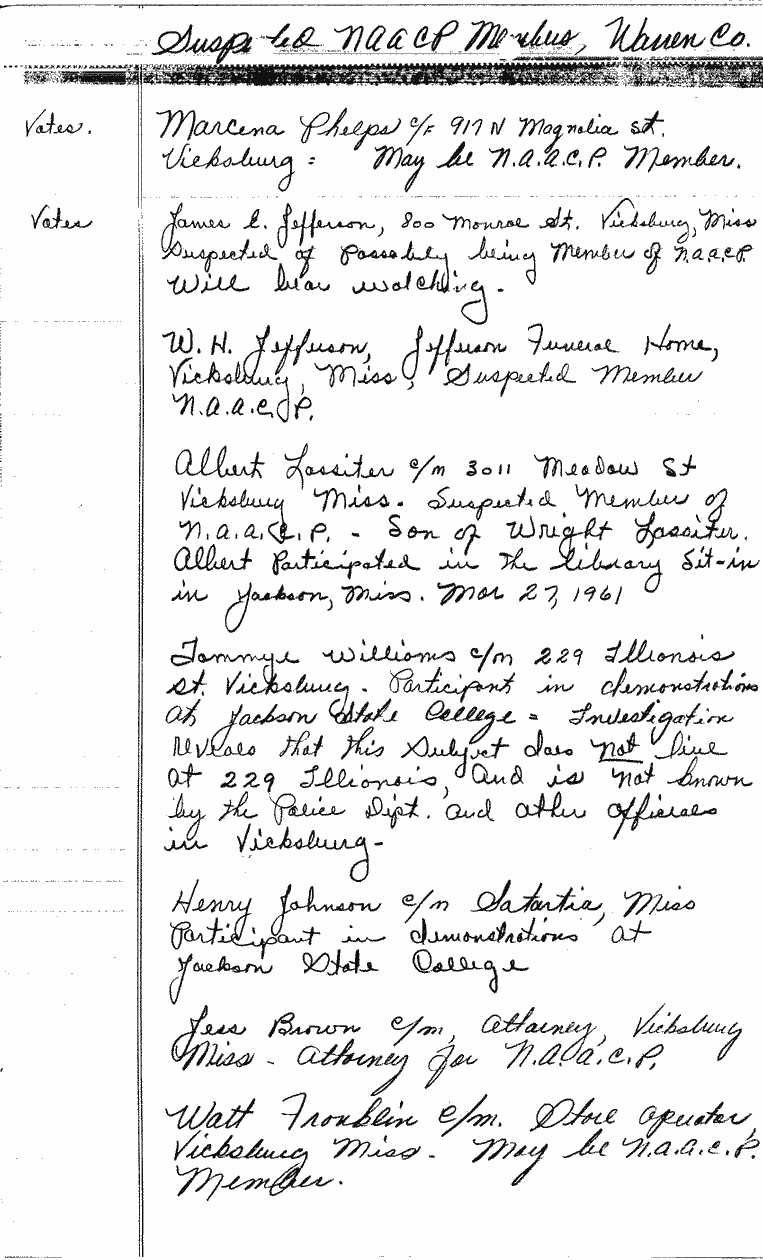 Suspected NAACP Members, Warren Co.
Votes. Marcena Phelps c/F 917 N Magnolia St.
Vicksburg = May be N.A.A.C.P. Member.
Votes James E. Jefferson, 800 Monroe St. Vicksburg, Miss
Suspected of Possobily being Member of N.A.A.C.P.
Will bear watching.
W. H. Jefferson, Jefferson Funeral Home,
Vicksburg, Miss, Suspected Member
N.A.A.C.P.
Albert Lassiter c/m 3011 Meadow St
Vicksburg Miss. Suspected Member of
N.A.A.C.P. - Son of Wright Lassiter.
Albert Participated in the library Sit-in
in Jackson, Miss. Mar 27, 1961
Tommye Williams c/m 229 Illionois
St. Vicksburg. Participant in demonstrations
at Jackson State College = Investigation
reveals that this Subject does not live
at 229 Illionois, and is not known
by the Police Dept. and other officials
in Vicksburg-
Henry Johnson c/m Satartia, Miss
Participant in demonstrations at
Jackson State College
Jess Brown c/m, Attorney, Vicksburg
Miss - Attorney for N.A.A.C.P.
Watt Fronklin c/m. Store operator,
Vicksburg Miss. May be N.A.A.C.P.
Member.